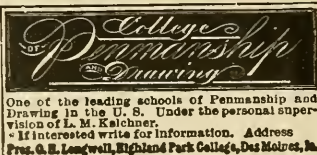 College
OF Penmanship
AND Drawing
One of the leading schools of Penmanship and
Drawing in the U. S. Under the personal super-
vision of L. M. Kelchner.
If interested write for information. Address
Pres. O. H. Longwell, Highland Park College, Des Moines, Ia.